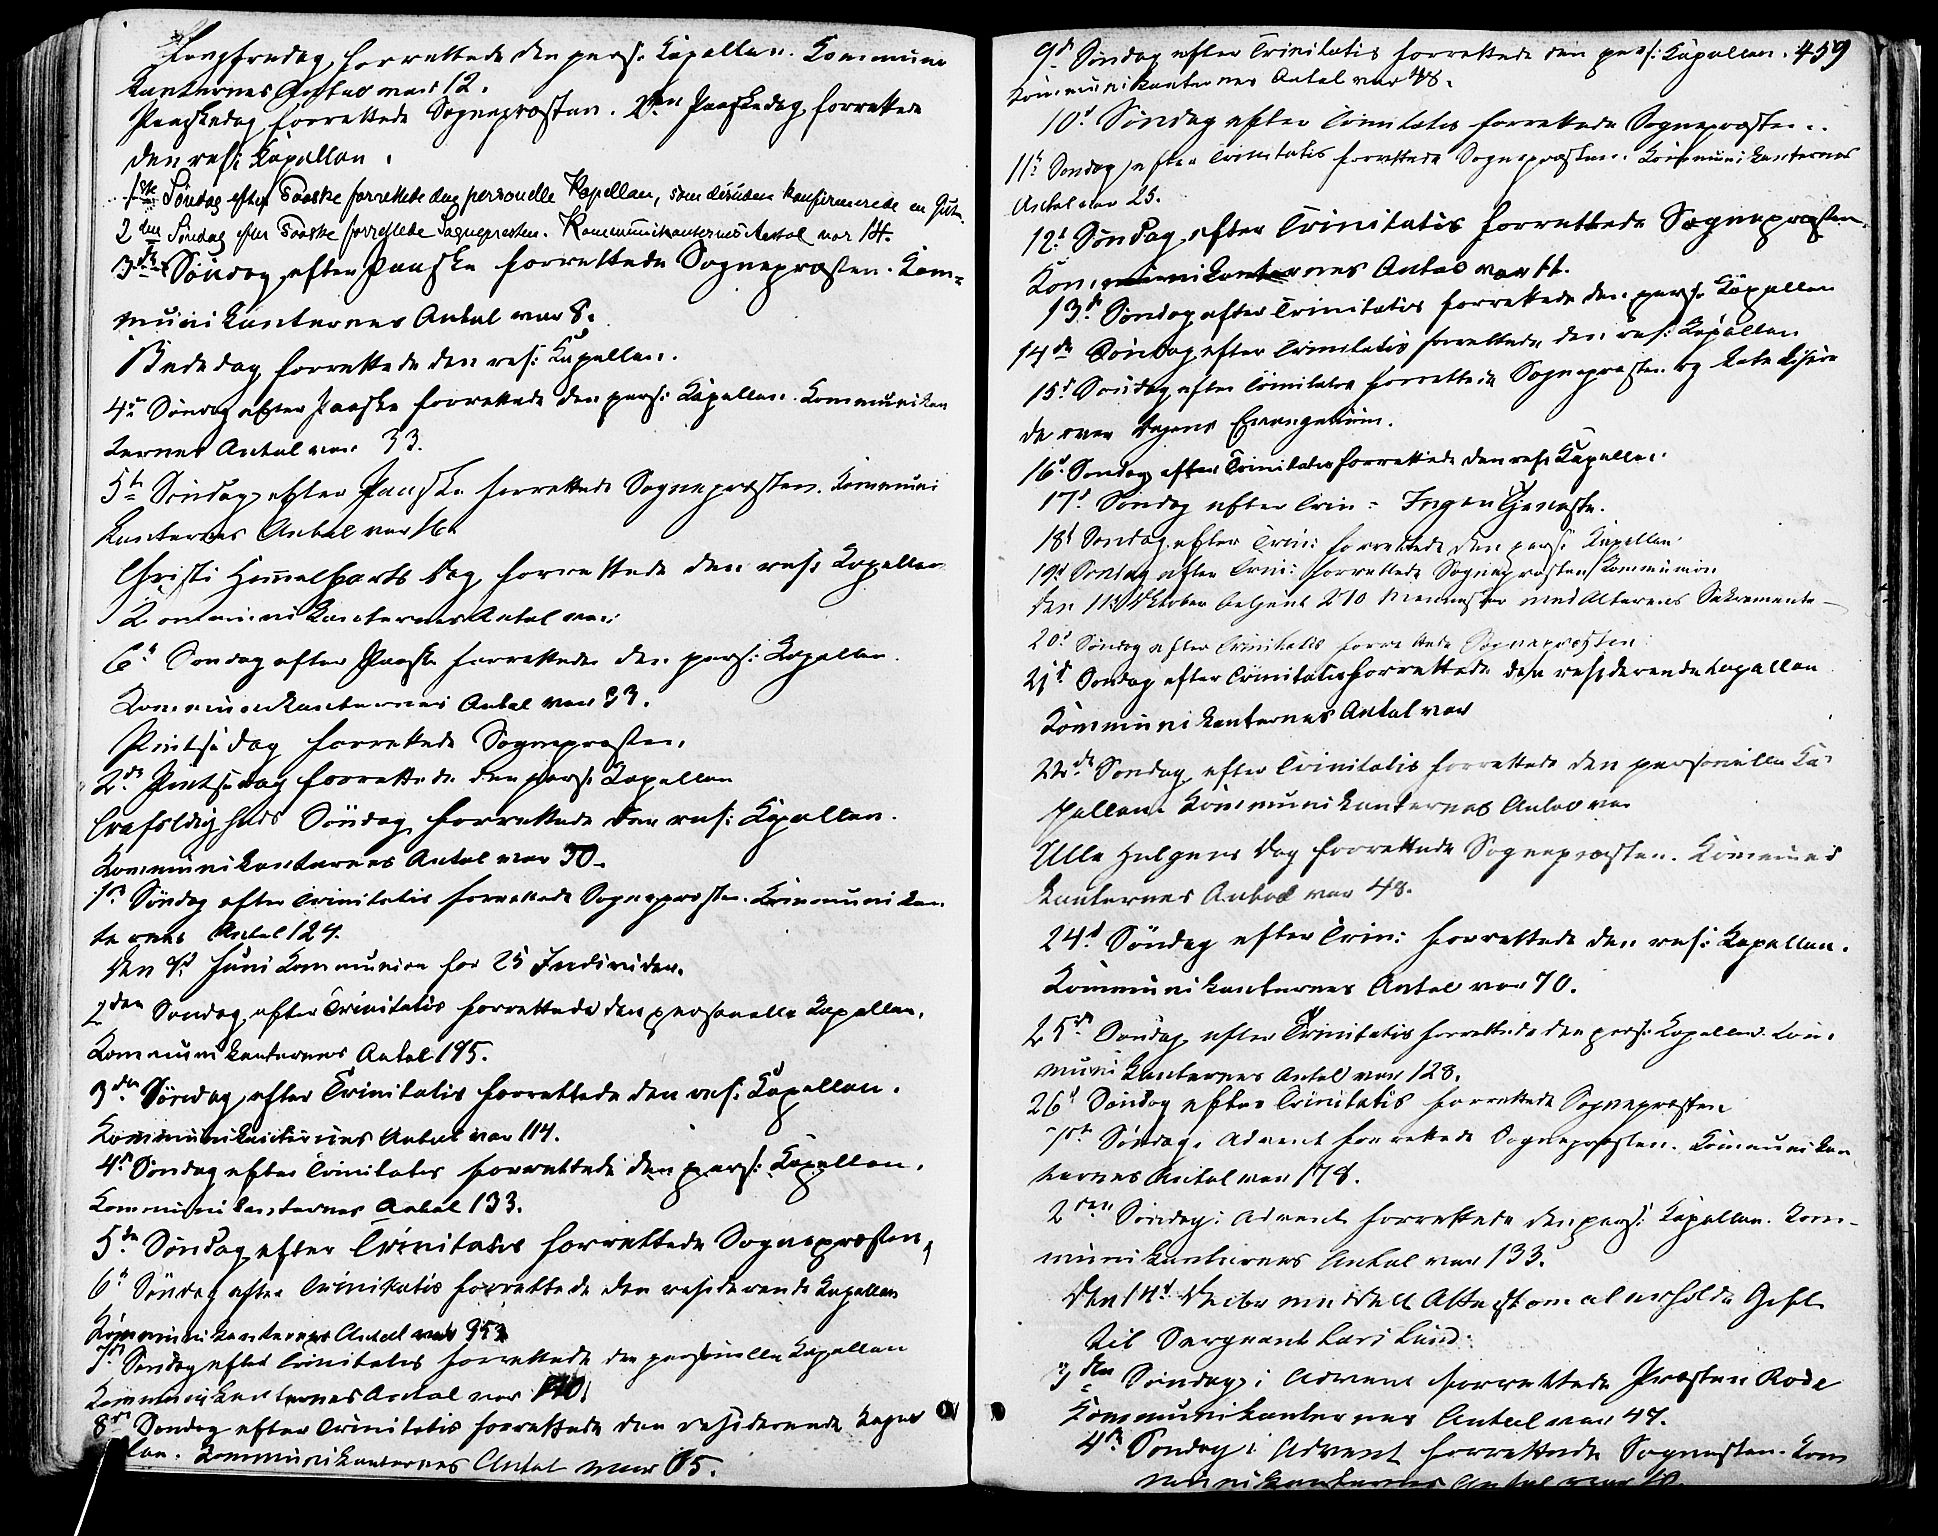 Langfredag forrettede den pers: Kapellan. Kommuni
kanternes Antal var 12.
Paaskedag forrettede Sognepræsten. 2den Paaskedag forrettede
den res: Kapellan.
1ste Søndag efter Paaske forrettede den personelle Kapellan, som desuden konfirmerede en
2den Søndag efter Paaske forrettede Sognepræsten. Kommunikanternes Antal var 14.
3die Søndag efter Paaske forrettede Sognepræsten. Kom-
munikanternes Antal var 8.
Bededag forrettede den res: Kapellan.
4de Søndag efter Paaske forrettede den pers: Kapellan. Kommunikan
ternes Antal var 33.
5te Søndag efter Paaske forrettede Sognepræsten. Kommuni
kanternes Antal var 16.
Christi Himmelfarts Dag forrettede den res: Kapellan
Kommunikanternes Antal var
6te Søndag efter Paaske forrettede den pers: Kapellan.
Kommunikanternes Antal var 33.
Pintsedag forrettede Sognepræsten.
2den Pintsedag forrettede den pers: Kapellan
Trefoldigheds Søndag forrettede den res: Kapellan.
Kommunikanternes Antal var 30.
1ste Søndag efter Trinitatis forrettede Sognepræsten. Kommunikan
ternes Antal 124.
Den Juni Kommunion for 25 Individer.
2den Søndag efter Trinitatis forrettede den personelle Kapellan.
Kommunikanternes Antal 195.
3die Søndag efter Trinitatis forrettede den res: Kapellan.
Kommunikanternes Antal var 114.
4de Søndag efter Trinitatis forrettede den pers: Kapellan.
Kommunikanternes Antal 133.
5te Søndag efter Trinitatis forrettede Sognepræsten,
6te Søndag efter Trinitatis forrettede den residerende Kapellan
Kommunikanternes Antal var
7de Søndag efter Trinitatis forrettede den personelle Kapellan
Kommunikanternes Antal var
8de Søndag efter Trinitatis forrettede den residerende Kapel
lan. Kommunikanternes Antal var 65.
9de Søndag efter Trinitatis forrettede den pers: Kapellan. 459
Kommunikanternes Antal var 48.
10de Søndag efter Trinitatis forrettede Sognepræsten.
11te Søndag efter Trinitatis forrettede Sognepræsten. Kommunikanternes
Antal var 25.
12te Søndag efter Trinitatis forrettede Sognepræsten.
Kommunikanternes Antal var 11.
13de Søndag efter Trinitatis forrettede den pers: Kapellan
14de Søndag efter Trinitatis forrettede den res: Kapellan
15de Søndag efter Trinitatis forrettede Sognepræsten og katekisere
de over Dagens Evangelium.
16de Søndag efter Trinitatis forrettede den res: Kapellan.
17de Søndag efter Trin: Ingen Tjeneste.
18de Søndag efter Trin: forrettede den pers: Kapellan.
19de Søndag efter Trin: forrettede Sognepræsten Kommunion
den 11te Oktober betjent 210 Mennesker med Alterens Sakramente
20de Søndag efter Trinitatis forrettede Sognepræsten
21de Søndag efter Trinitatis forrettede den residerende Kapellan
Kommunikanternes Antal var
22de Søndag efter Trinitatis forrettede den personelle Ka-
pellan. Kommunikanternes Antal var
Alle Helgens Dag forrettede Sognepræsten. Kommuni
kanternes Antal var 48.
24de Søndag efter Trin: forrettede den res: Kapellan.
Kommunikanternes Antal var 70.
25de Søndag efter Trinitatis forrettede den pers: Kapellan. Kom-
munikanternes Antal var 128.
26de Søndag efter Trinitatis forrettede Sognepræsten
1ste Søndag i Advent forrettede Sognepræsten. Kommunikan
ternes Antal var 178.
2den Søndag i Advent forrettede den pers: Kapellan. Kom-
munikanternes Antal var 133.
Den 14de Decbr meddelt Attest om at erholde Gift
til Sergeant Lars Lund.
3die Søndag i Advent forrettede Præsten Rode
Kommunikanternes Antal var 47.
4de Søndag i Advent forrettede Sognesten. Kom
munikanternes Antal var